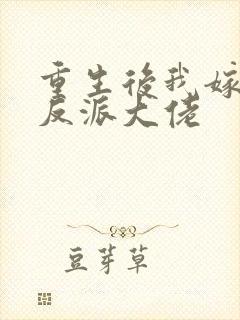 重生後我嫁
反派大佬
豆芽草